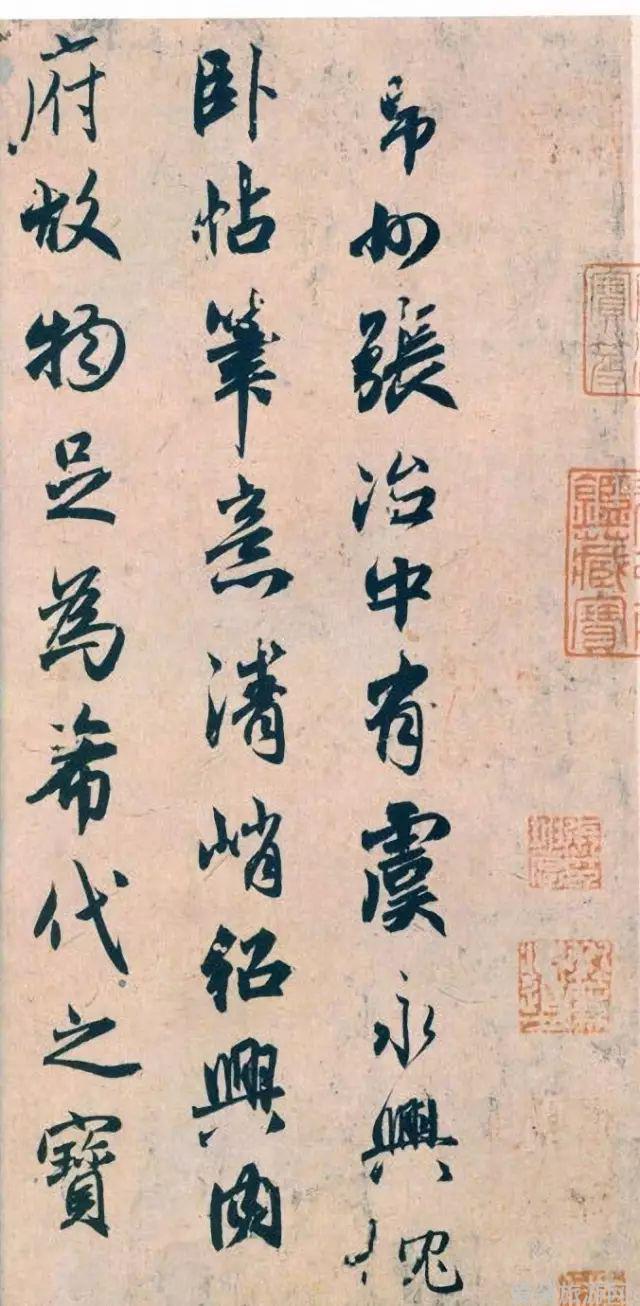 寶笈
鑑藏寶
州張治中有虞永興
卧帖筆意清峭紹興內
府故物足為希代之寶